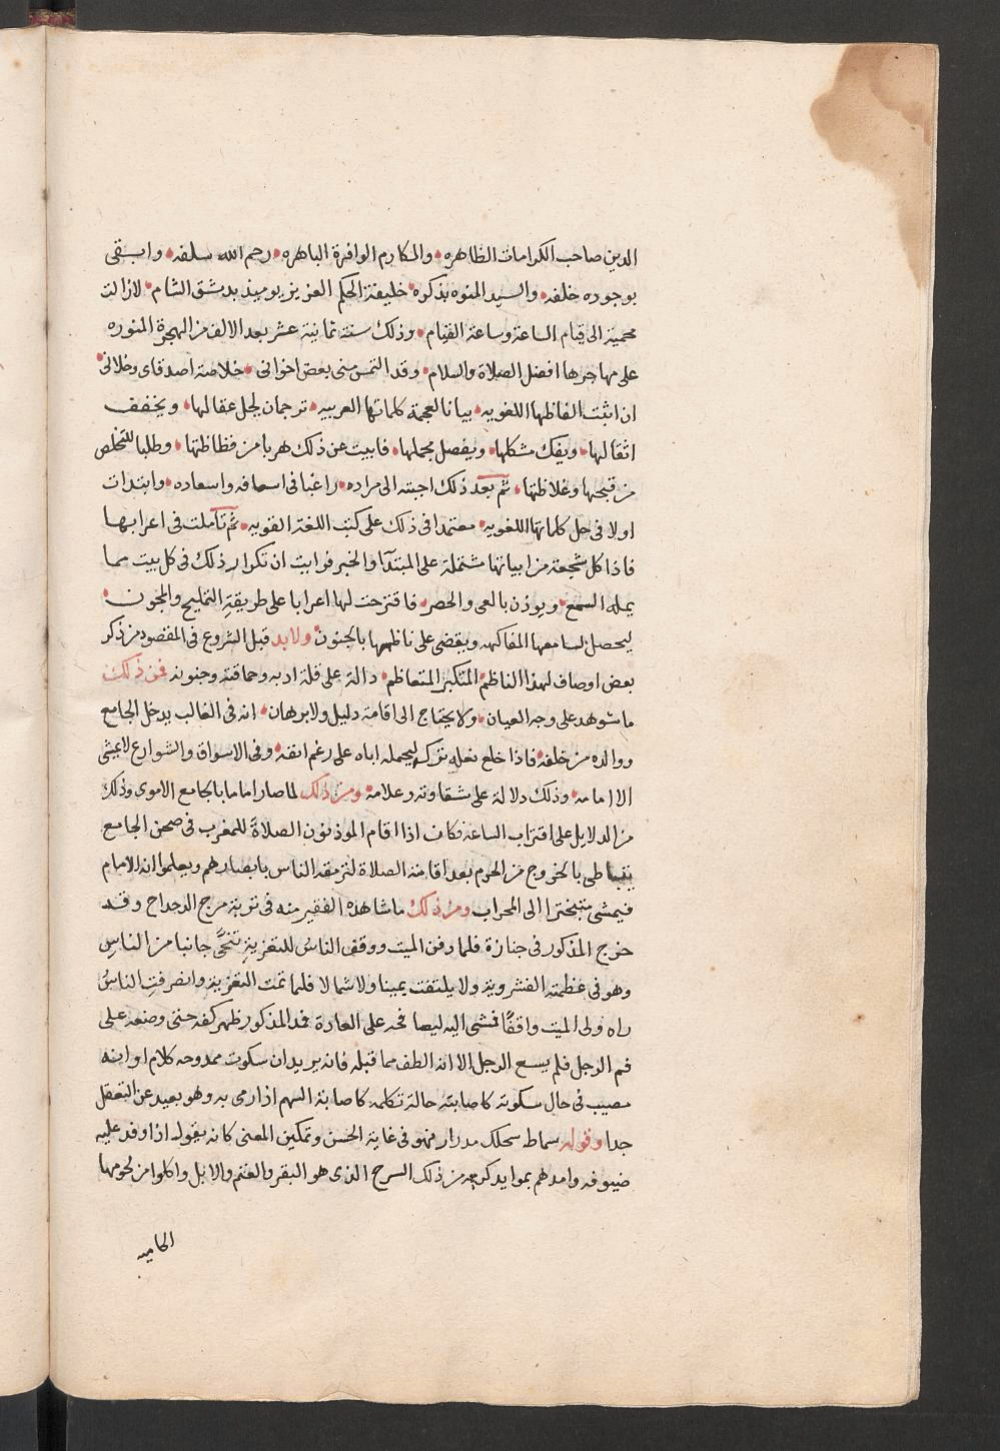 الدين صاحب الكرامات الظاهره والمكارم الوافرة الباهره رحم الله سلفه وابقى
بوجوده خلفه والسيد المنوه بذكره خليفة الحكم العزيز يوميذ بدمشق الشام لازالت
محمية الى قيام الساعة وساعة القيام وذلك سنة ثمانية عشر بعد الالف من الهجرة المنوره
على مهاجرها افضل الصلاة والسلام وقد التمس منى بعض اخوانى خلاصة اصدقاى وخلانى
ان اثبت الفاظها اللغويه بيانا لعجمة كلماتها العربيه ترجمان يحل عقالها ويخفف
اثقالها ويفك مشكلها ويفصل مجملها فابيت عن ذلك هربا من فظاظتها وطلبا للتخلص
من قبحها وغلاظتها ثم بعد ذلك اجبته الى مراده راغبا فى اسعافه واسعاده وابتدات
اولا فى حل كلماتها اللغويه معتمدا فى ذلك على كتب اللغة القويه ثم تأملت فى اعرابها
فاذا كل شجعة من ابياتها مشتملة على المبتدآ والخبر فرايت ان تكرار ذلك فى كل بيت مما
يمله السمع ويوذن بالعى والحصر فاقترحت لها اعرابا على طريقة التمليح والمجون
ليحصل لسامعها المفاكهه ويقضى على ناظمها بالجنون ولابد قبل الشروع فى المقصود من ذكر
بعض اوصاف لهذا الناظم المتكبر المتعاظم دالة على قلة ادبه وحماقته وجنونه فمن ذلك
ما شوهد على وجه العيان ولا يحتاج الى اقامة دليل ولا برهان انه فى الغالب يدخل الجامع
ووالده من خلفه فاذا خلع نعله تركه ليحمله اباه على رغم انفه وفى الاسواق والشوارع لا يمشى
الا امامه وذلك دلالة على شقاوته وعلامه ومن ذلك لما صار اماما بالجامع الاموى وذلك
من الدلايل على اقتراب الساعة فكان اذا اقام الموذنون الصلاة للمغرب فى صحن الجامع
يتباطى بالخروج من الحرم بعد اقامة الصلاة لترمقه الناس بابصارهم ويعلموا انه الامام
فيمشى متبخترا الى المحراب ومن ذلك ما شاهده الفقير منه فى تربة مرج الدحداح وقد
خرج المذكور فى جنازة فلما دفن الميت ووقف الناس للتعزية تنحى جانبا من الناس
وهو فى عظمته الفشروية ولا يلتفت يمينا ولا شمالا فلما تمت التعزية وانصرفت الناس
راه ولى الميت واقفا فمشى اليه ليصافحه على العادة فمد المذكور ظهر كفه حتى وضعه على
فم الرجل فلم يسع الرجل الا انه الطف مما قبله فانه يريد ان سكوت ممدوحه كلام او انه
مصيب فى حال سكوته كاصابته حالة تكلمه كاصابة السهم اذا رمى به وهو بعيد عن التعقل
جدا وقوله سماط سحلك مدرار فهو فى غاية الحسن وتمكين المعنى كانه يقول اذا وفد عليه
ضيوفه وامدهم بموايد كرمه من ذلك السرح الذى هو البقر والغنم والابل واكلوا من لحومها